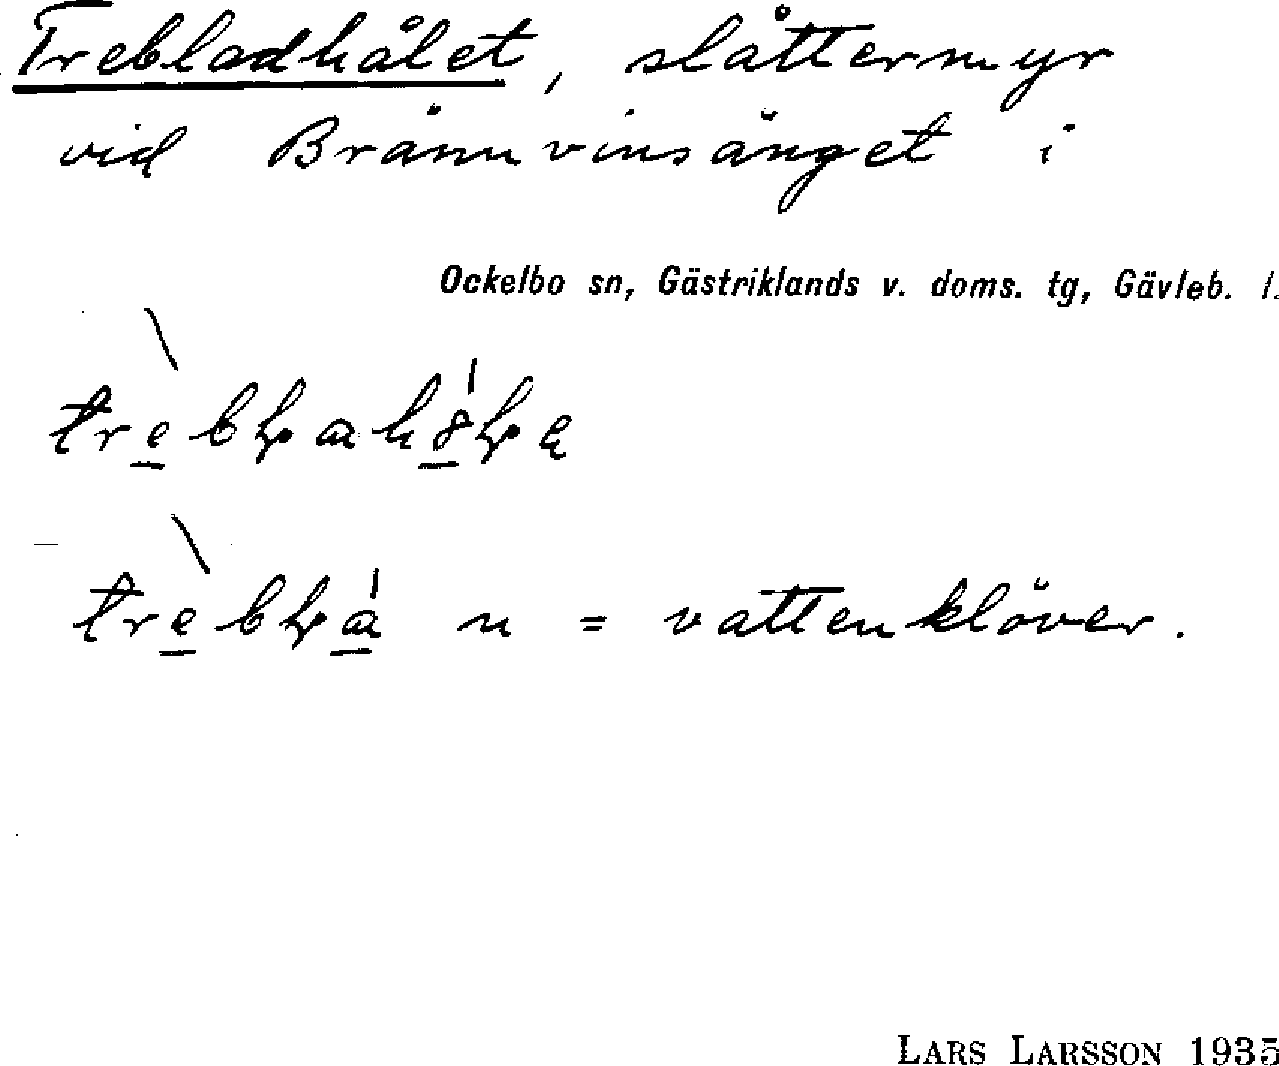 Trebladhålet, slåttermyr
vid Brännvinsänget i
Ockelbo sn, Gästriklands v. doms. tg, Gävleb. l.
n = vattenklöver.
LARS LARSSON 1935